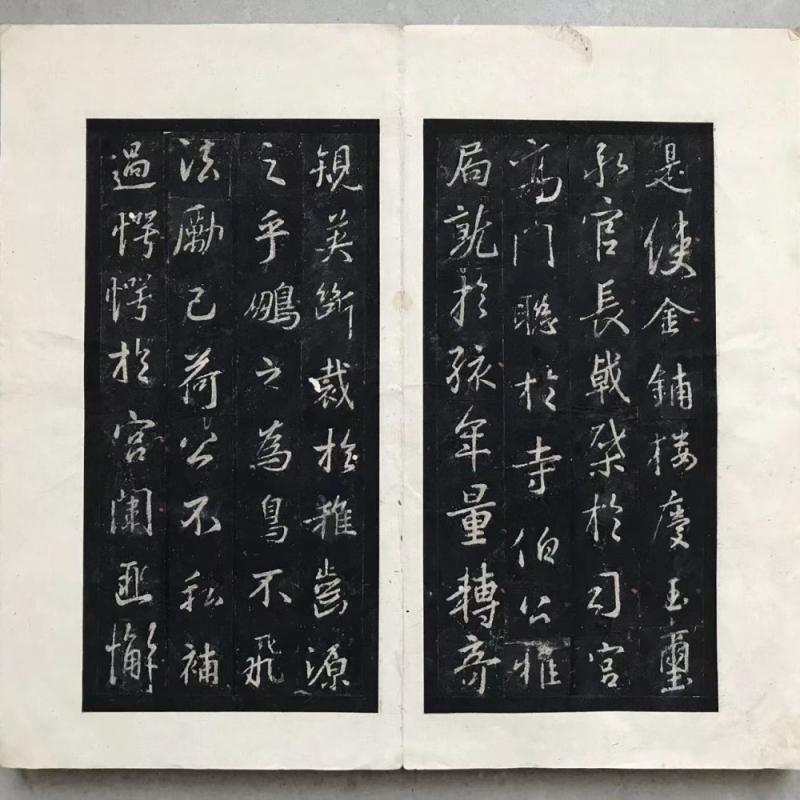 是使金鋪樓慶玉璽
承官長戟於司宮
高門於寺伯公雅
局就於孩年量轉奇
規英斷裁於稚齒源
之乎鵬之為鳥不飛
法勵己荷公不私補
過愕愕於宮闈匪懈